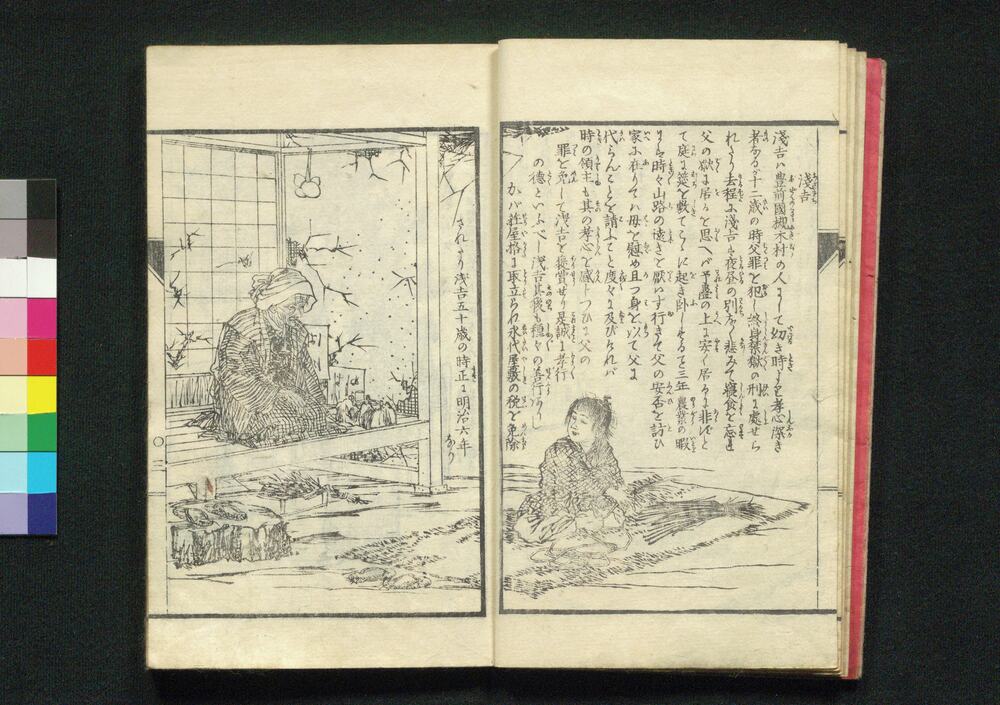 淺吉
淺吉ハ豊前國槻木村の人にして幼き時より孝心深き
者なるが十二歳の時父罪を犯し終身禁獄の刑に處せら
れたり去程に淺吉は夜昼の別なく悲みて寝食を忘れ
父の獄に居るを思へバ予疊の上に安く居るに非ずと
て庭に莚を敷てこゝに起き卧しすること三年農業の暇
にハ時々山路の遠きを厭はず行きて父の安否を訪ひ
家に在りてハ母を慰め且つ身を以て父に
代らんことを請ふこと度々に及びけれバ
時の領主も其の孝心を感じつひに父の
罪を免して淺吉を褒賞せり是誠に孝行
の德といふべし淺吉其後も種々の善行ありし
かバ庄屋格に取立られ永代屋敷の税を免除
されたり淺吉五十歳の時正に明治六年
なり